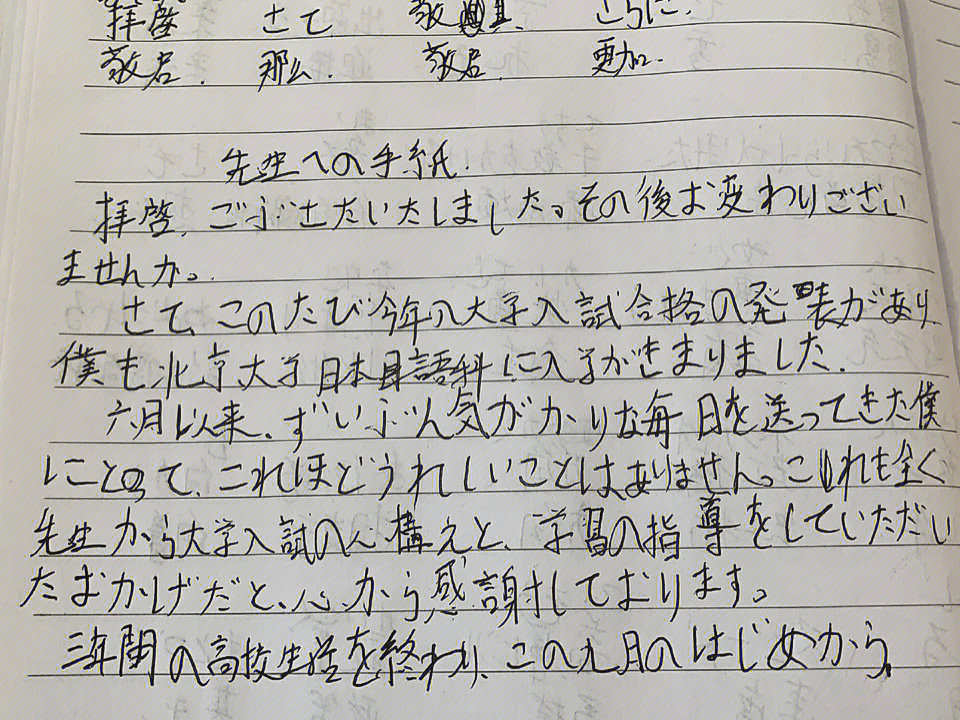 拝啓 さて 敬具. さらに.
敬启. 那么. 敬启. 更加.
先生への手紙.
拝啓. ごぶさたいたしました。その後お変わりござい
ませんか。
さて、このたび今年の大学入試合格の発表があり
僕も北京大学日本語科に入学がきまりました.
六月以来、ずいぶん気がかりな毎日を送ってきた僕
にとって、これほどうれしいことはありません。これも全く
先生から大学入試の心構えと、学習の指導をしていただい
たおかげだと、心から感謝しております。
三年間の高校生活を終わり、この九月のはじめから、